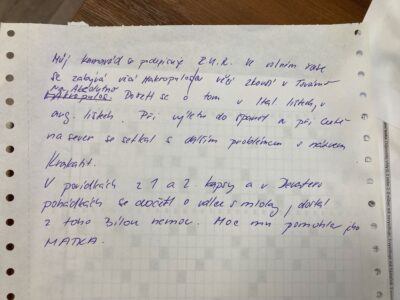 Můj kamarád je podepsaný R.U.R. Ve volném čase
se zabývá věcí Makropulos věčí zkouší v Továrně
Na Absolutno
Dočetl se o tom v Ital. listech, v
ang. listech. Při výletu do Španěl a při Cestě
na sever se setkal s dalším problémem s názvem
Krakatit.
V povídkách z 1 a 2. kapsy a v Devateru
pohádkách se dočetl o válce s mloky, dostal
z toho Bílou nemoc. Moc mu pomohla jeho
MATKA.